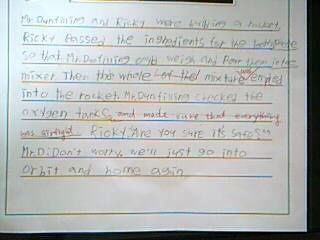 Mr. Dunfilling and Ricky were building a rocket.
Ricky Passed the inghedients for the toothPaste
so that Mr. Dunfilling could weigh and Pour them into a
mixer. Then the whole of the mixture was emptied
into the rocket. Mr. Dunfilling checked the
oxygen tanks, and made sure that everything
was airtight. Ricky: Are you sure it's safe?"
Mr. D: Don't worry. we'll just go into
orbit and home again.